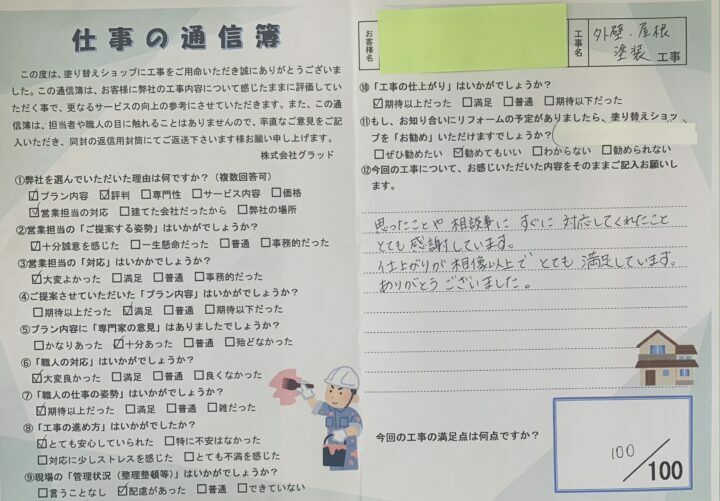 仕事の通信簿
この度は、塗り替えショップに工事をご用命いただき誠にありがとうございま
した。この通信簿は、お客様に弊社の工事内容について感じたままに評価してい
ただく事で、更なるサービスの向上の参考にさせていただきます。また、この通信
簿は、担当者や職人の目に触れることはありませんので、率直なご意見をご記
入いただき、同封の返信用封筒にてご返送下さいます様お願い申し上げます。
株式会社グラッド
①弊社を選んでいただいた理由は何ですか？（複数回答可）
☑プラン内容 ☑評判 □専門性 □サービス内容 □価格
☑営業担当の対応 □建てた会社だったから □弊社の場所
②営業担当の「ご提案する姿勢」はいかがでしょうか？
☑十分誠意を感じた □一生懸命だった □普通 □事務的だった
③営業担当の「対応」はいかかでしょうか？
☑大変よかった □満足 □普通 □事務的だった
④ご提案させていただいた「プラン内容」はいかがでしょうか？
□期待以上だった ☑満足 □普通 □期待以下だった
⑤プラン内容に「専門家の意見」はありましたでしょうか？
□かなりあった ☑十分あった □普通 □殆どなかった
⑥「職人の対応」はいかがでしょうか？
☑大変良かった □満足 □普通 □良くなかった
⑦「職人の仕事の姿勢」はいかがでしょうか？
☑期待以上だった □満足 □普通 □雑だった
⑧「工事の進め方」はいかがでしたか？
☑とても安心していられた □特に不安はなかった
□対応に少しストレスを感じた □とても不満を感じた
⑨現場の「管理状況（整理整頓等）」はいかがでしょうか？
□言うことなし ☑配慮があった □普通 □できていない
お客様名
工事名
外壁・屋根
塗装 工事
⑩「工事の仕上がり」はいかがでしょうか？
☑期待以上だった □満足 □普通 □期待以下だった
⑪もし、お知り合いにリフォームの予定がありましたら、塗り替えショッ
プを「お勧め」いただけますでしょうか？
□ぜひ勧めたい ☑勧めてもいい □わからない □勧められない
⑫今回の工事について、お感じいただいた内容をそのままご記入お願いし
ます。
思ったことや 相談事に すぐに 対応してくれたこと
とても感謝しています。
仕上がりが 想像以上で とても 満足しています。
ありがとう ございました。
今回の工事の満足点は何点ですか？
100/100